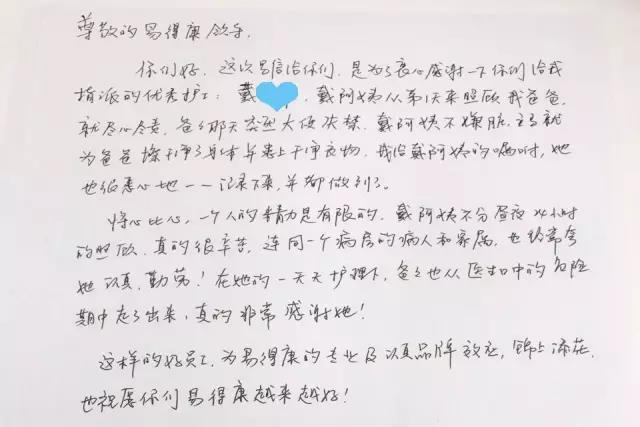 尊敬的易得康领导.
你们好. 这次写信给你们, 是为了衷心感谢一下你们给我
指派的优秀护工: 戴 . 戴阿姨从第1天来照顾我爸爸,
就尽心尽责, 爸爸那天突然大便失禁. 戴阿姨不嫌脏, 立马就
为爸爸擦干净了身体并患上干净衣物. 我给戴阿姨的嘱咐, 她
也很悉心地一一记录下来, 并都做到了.
将心比心, 一个人的精力是有限的. 戴阿姨不分昼夜 24小时
的照顾. 真的很辛苦. 连同一个病房的病人和家属, 也经常夸
她认真, 勤劳! 在她的一天天护理下, 爸爸也从医生口中的危险
期中走了出来, 真的非常感谢她!
这样的好员工, 为易得康的专业及认真品牌效应, 锦上添花.
也祝愿你们易得康越来越好!